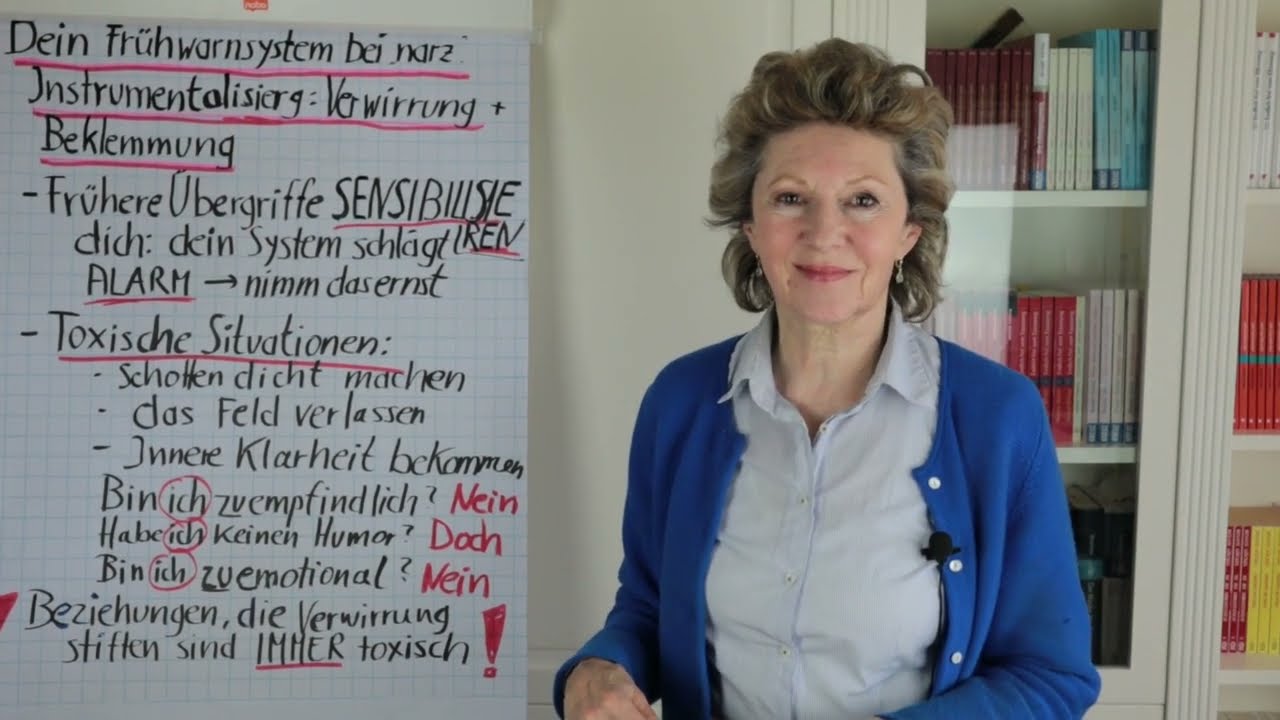 nobo
Dein Frühwarnsystem bei narz.
Instrumentalisierg = Verwirrung +
Beklemmung
- Frühere Übergriffe SENSIBILISIE
dich: dein System schlägt IREN
ALARM → nimm das ernst
- Toxische Situationen:
- Schotten dicht machen
- das Feld verlassen
- Innere Klarheit bekommen
Bin ich zu empfindlich? Nein
Habe ich keinen Humor? Doch
Bin ich zu emotional? Nein
Beziehungen, die Verwirrung
stiften sind IMMER toxisch !